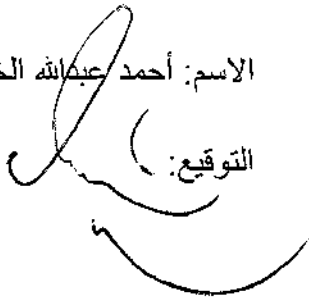 الاسم: أحمد عبدالله
التوقيع: